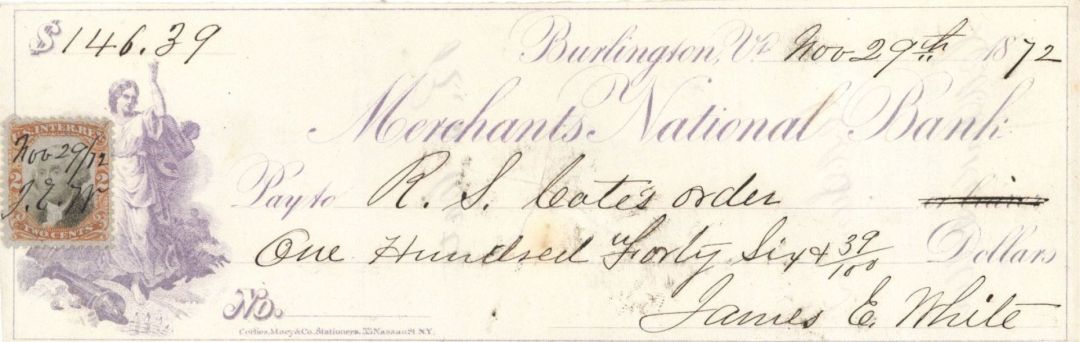 $146.39
Burlington, Vt. Nov 29th 1872
Merchants National Bank
Pay to R. S. Cote's order
One Hundred Forty Six & 39/100 Dollars
No.
James E. White
Corlies, Macy & Co. Stationers. 33 Nassau St. N.Y.
U.S. INTER. REV.
Nov 29/72
J. E. W
2 2
TWO CENTS